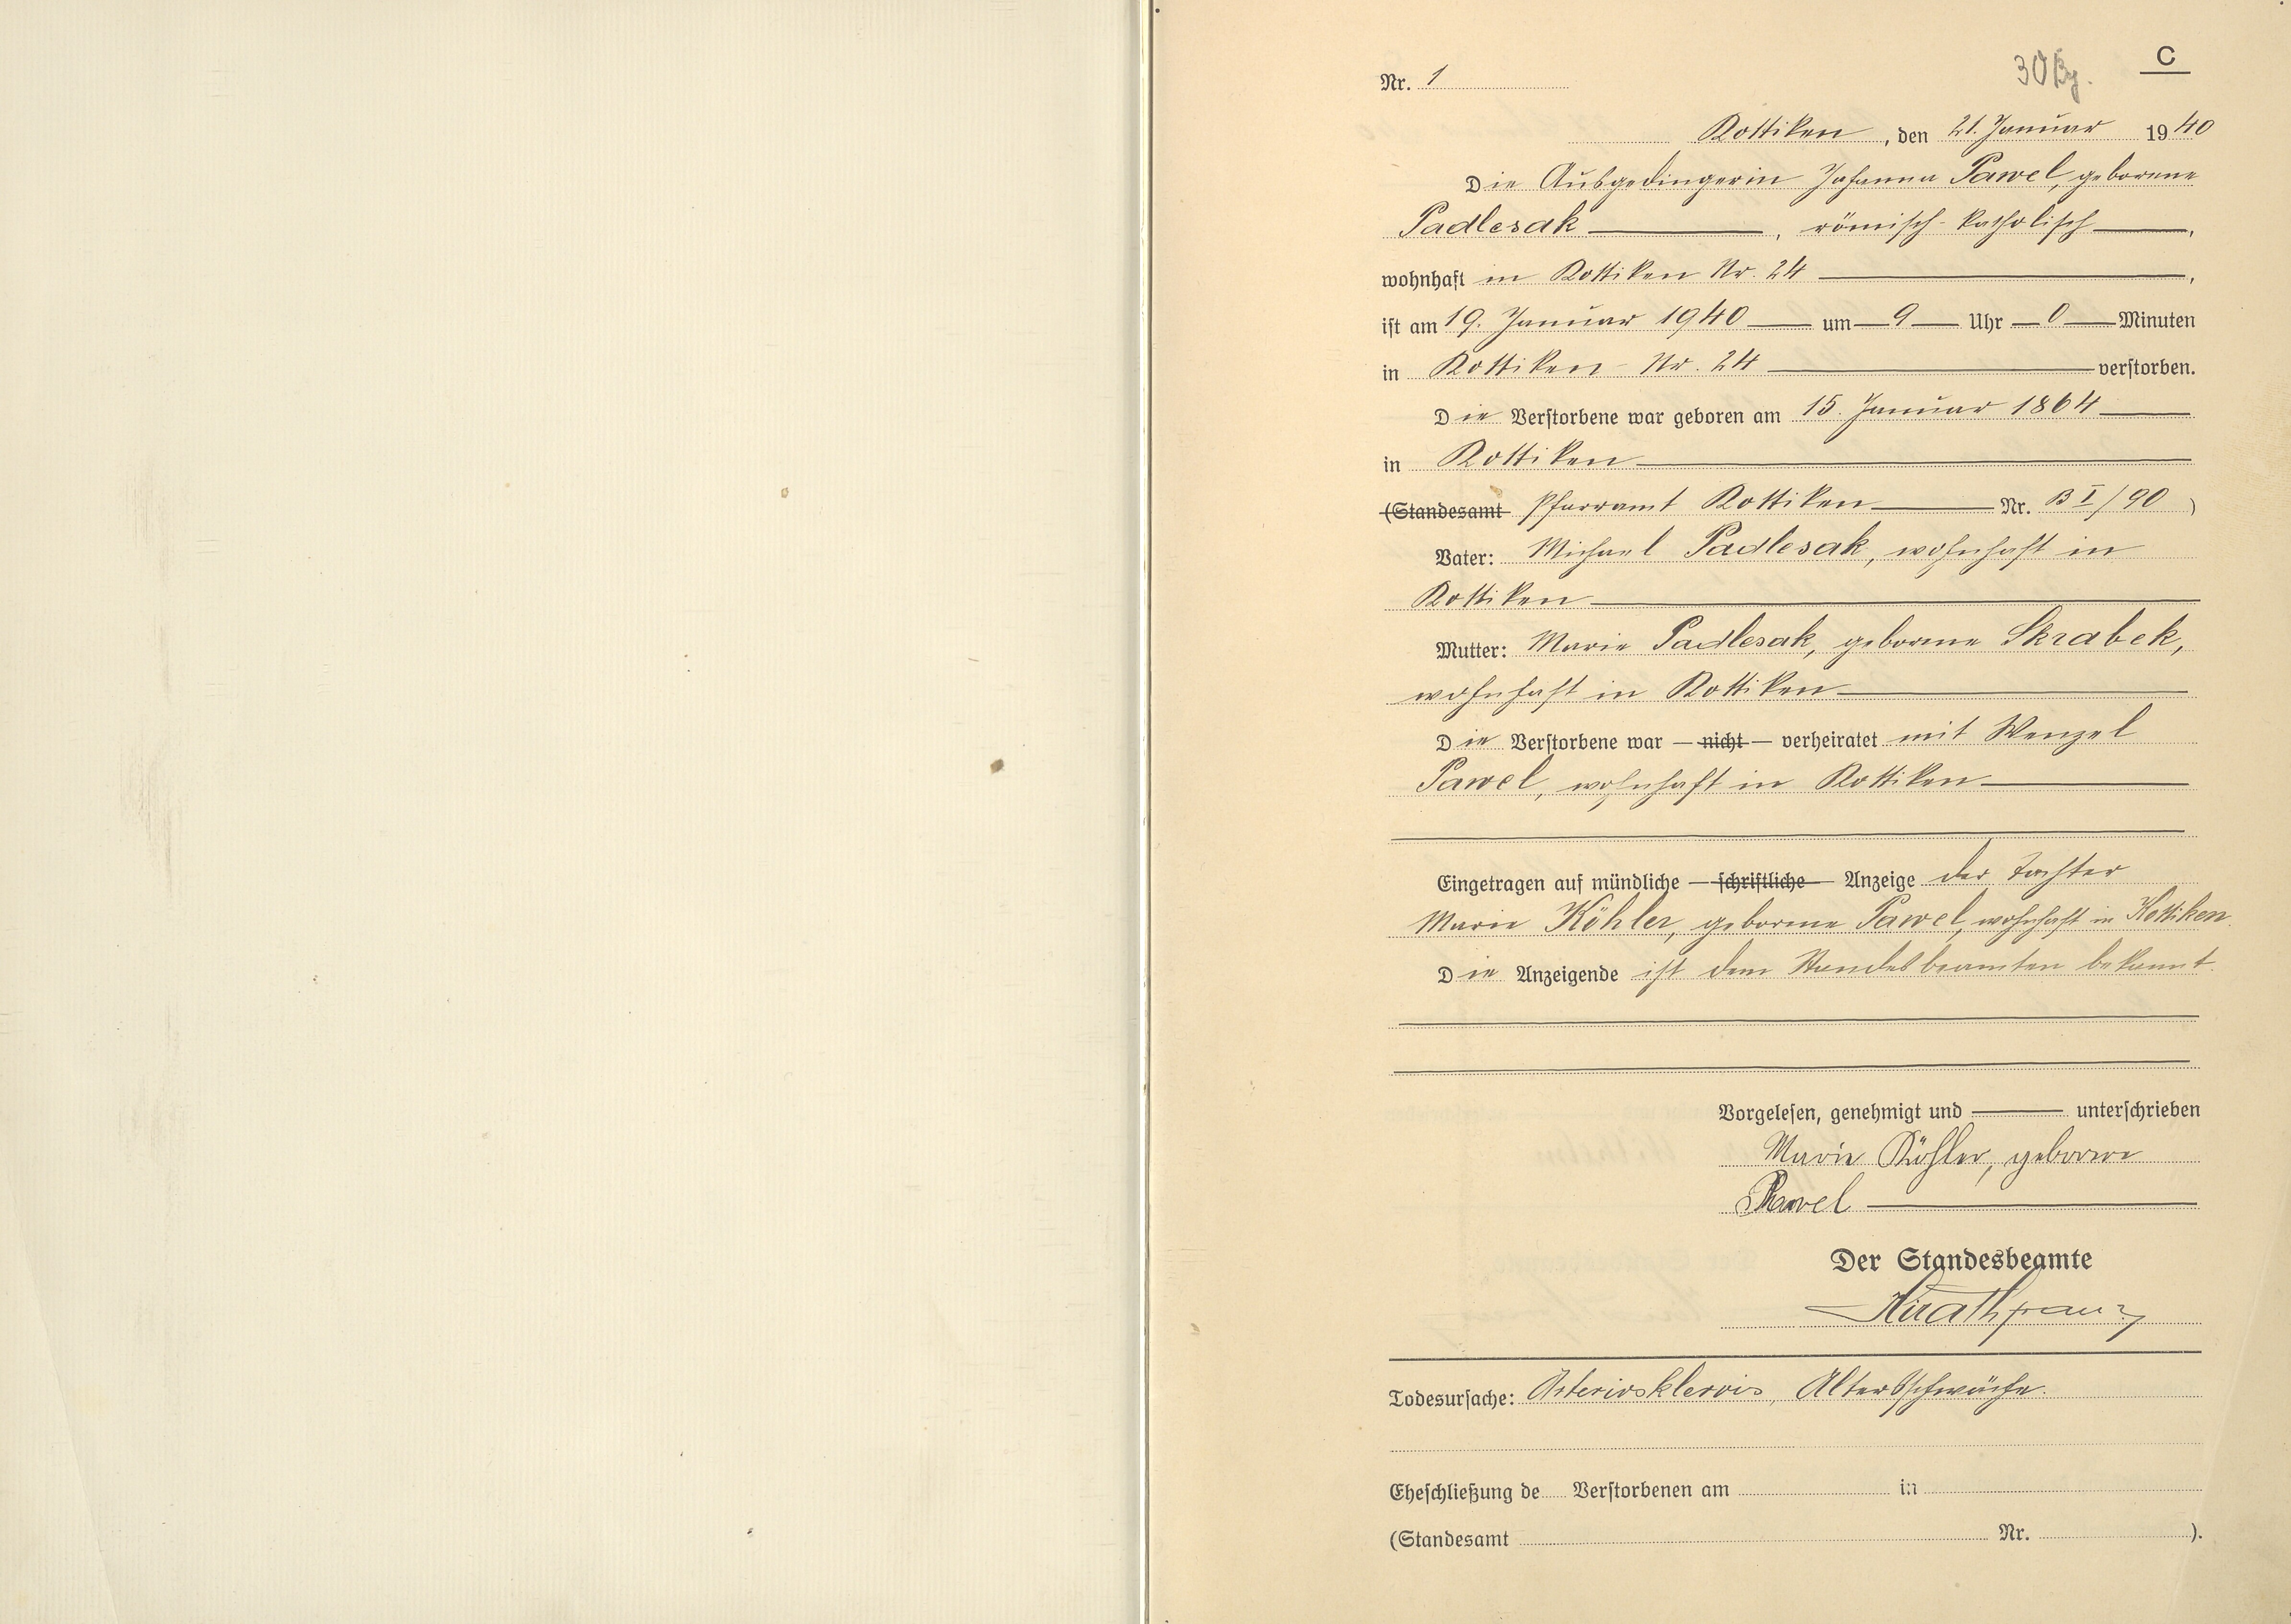 C
Nr. 1
Kottiken, den 21. Januar 1940
Die Ausgedingerin Johanna Pawel, geborene
Padlesak, römisch-katholisch,
wohnhaft in Kottiken Nr. 24,
ist am 19. Januar 1940 um 9 Uhr 0 Minuten
in Kottiken - Nr. 24 verstorben.
Die Verstorbene war geboren am 15. Januar 1864
in Kottiken
(Standesamt Pfarramt Kottiken Nr. B I/90)
Vater: Michael Padlesak, wohnhaft in
Kottiken
Mutter: Marie Padlesak, geborene Skrabek,
wohnhaft in Kottiken
Die Verstorbene war — nicht — verheiratet mit Wenzel
Pawel, wohnhaft in Kottiken
Eingetragen auf mündliche — schriftliche — Anzeige der Tochter
Marie Köhler, geborene Pawel, wohnhaft in Kottiken.
Die Anzeigende ist dem Standesbeamten bekannt.
Vorgelesen, genehmigt und unterschrieben
Marie Köhler, geborene
Pawel
Der Standesbeamte
Todesursache: Arteriosklerois, Altersschwäche.
Eheschließung de Verstorbenen am in
(Standesamt Nr. ).